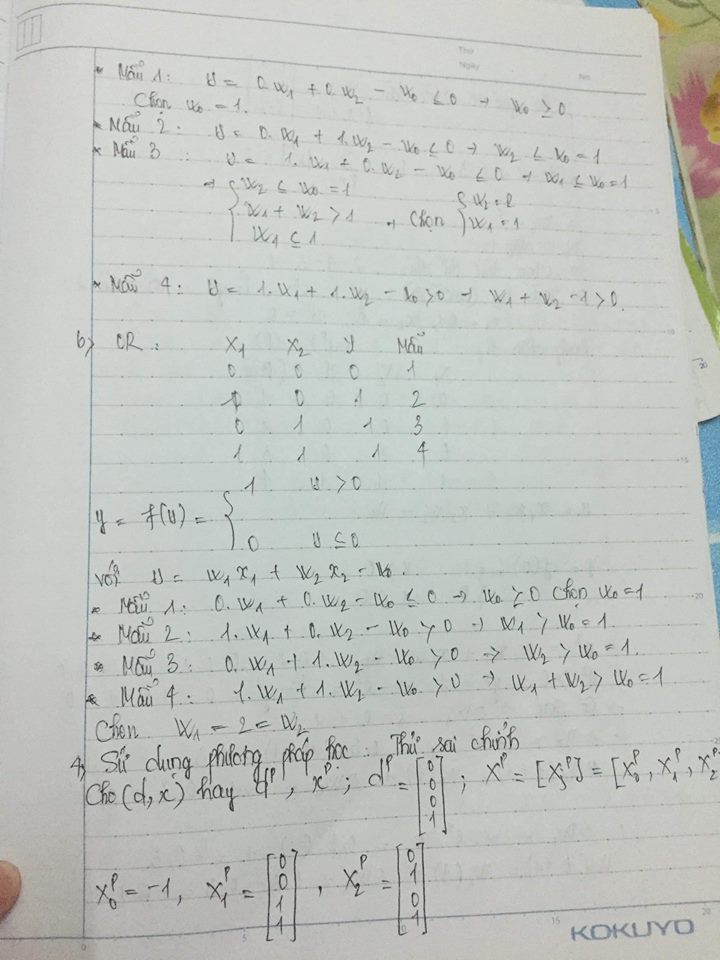 Thứ
Ngày
No.
* Mẫu 1: U = 0.W1 + 0.W2 - W0 ≤ 0 → W0 ≥ 0
Chọn W0 = 1.
* Mẫu 2: U = 0.W1 + 1.W2 - W0 ≤ 0 → W2 ≤ W0 = 1
* Mẫu 3: U = 1.W1 + 0.W2 - W0 ≤ 0 → W1 ≤ W0 = 1
→ { W2 ≤ W0 = 1
W1 + W2 > 1 → Chọn { W2 = 1
W1 ≤ 1 W1 = 1
* Mẫu 4: U = 1.W1 + 1.W2 - W0 > 0 → W1 + W2 - 1 > 0.
b) OR: X1 X2 Y Mẫu
0 0 0 1
1 0 1 2
0 1 1 3
1 1 1 4
y = f(U) = { 1 U > 0
0 U ≤ 0
với U = W1 X1 + W2 X2 - W0.
* Mẫu 1: 0.W1 + 0.W2 - W0 ≤ 0 → W0 ≥ 0 Chọn W0 = 1
* Mẫu 2: 1.W1 + 0.W2 - W0 > 0 → W1 > W0 = 1.
* Mẫu 3: 0.W1 + 1.W2 - W0 > 0 → W2 > W0 = 1.
* Mẫu 4: 1.W1 + 1.W2 - W0 > 0 → W1 + W2 > W0 = 1
Chọn W1 = 2 = W2
4) Sử dụng phương pháp học: Thử sai chỉnh
Cho (d, x) hay d^P, x^P; d^P = [0 0 0 1]; X^P = [Xj^P] = [X0^P, X1^P, X2^P
X0^P = -1, X1^P = [0 0 1 1], X2^P = [0 1 0 1]
KOKUYO